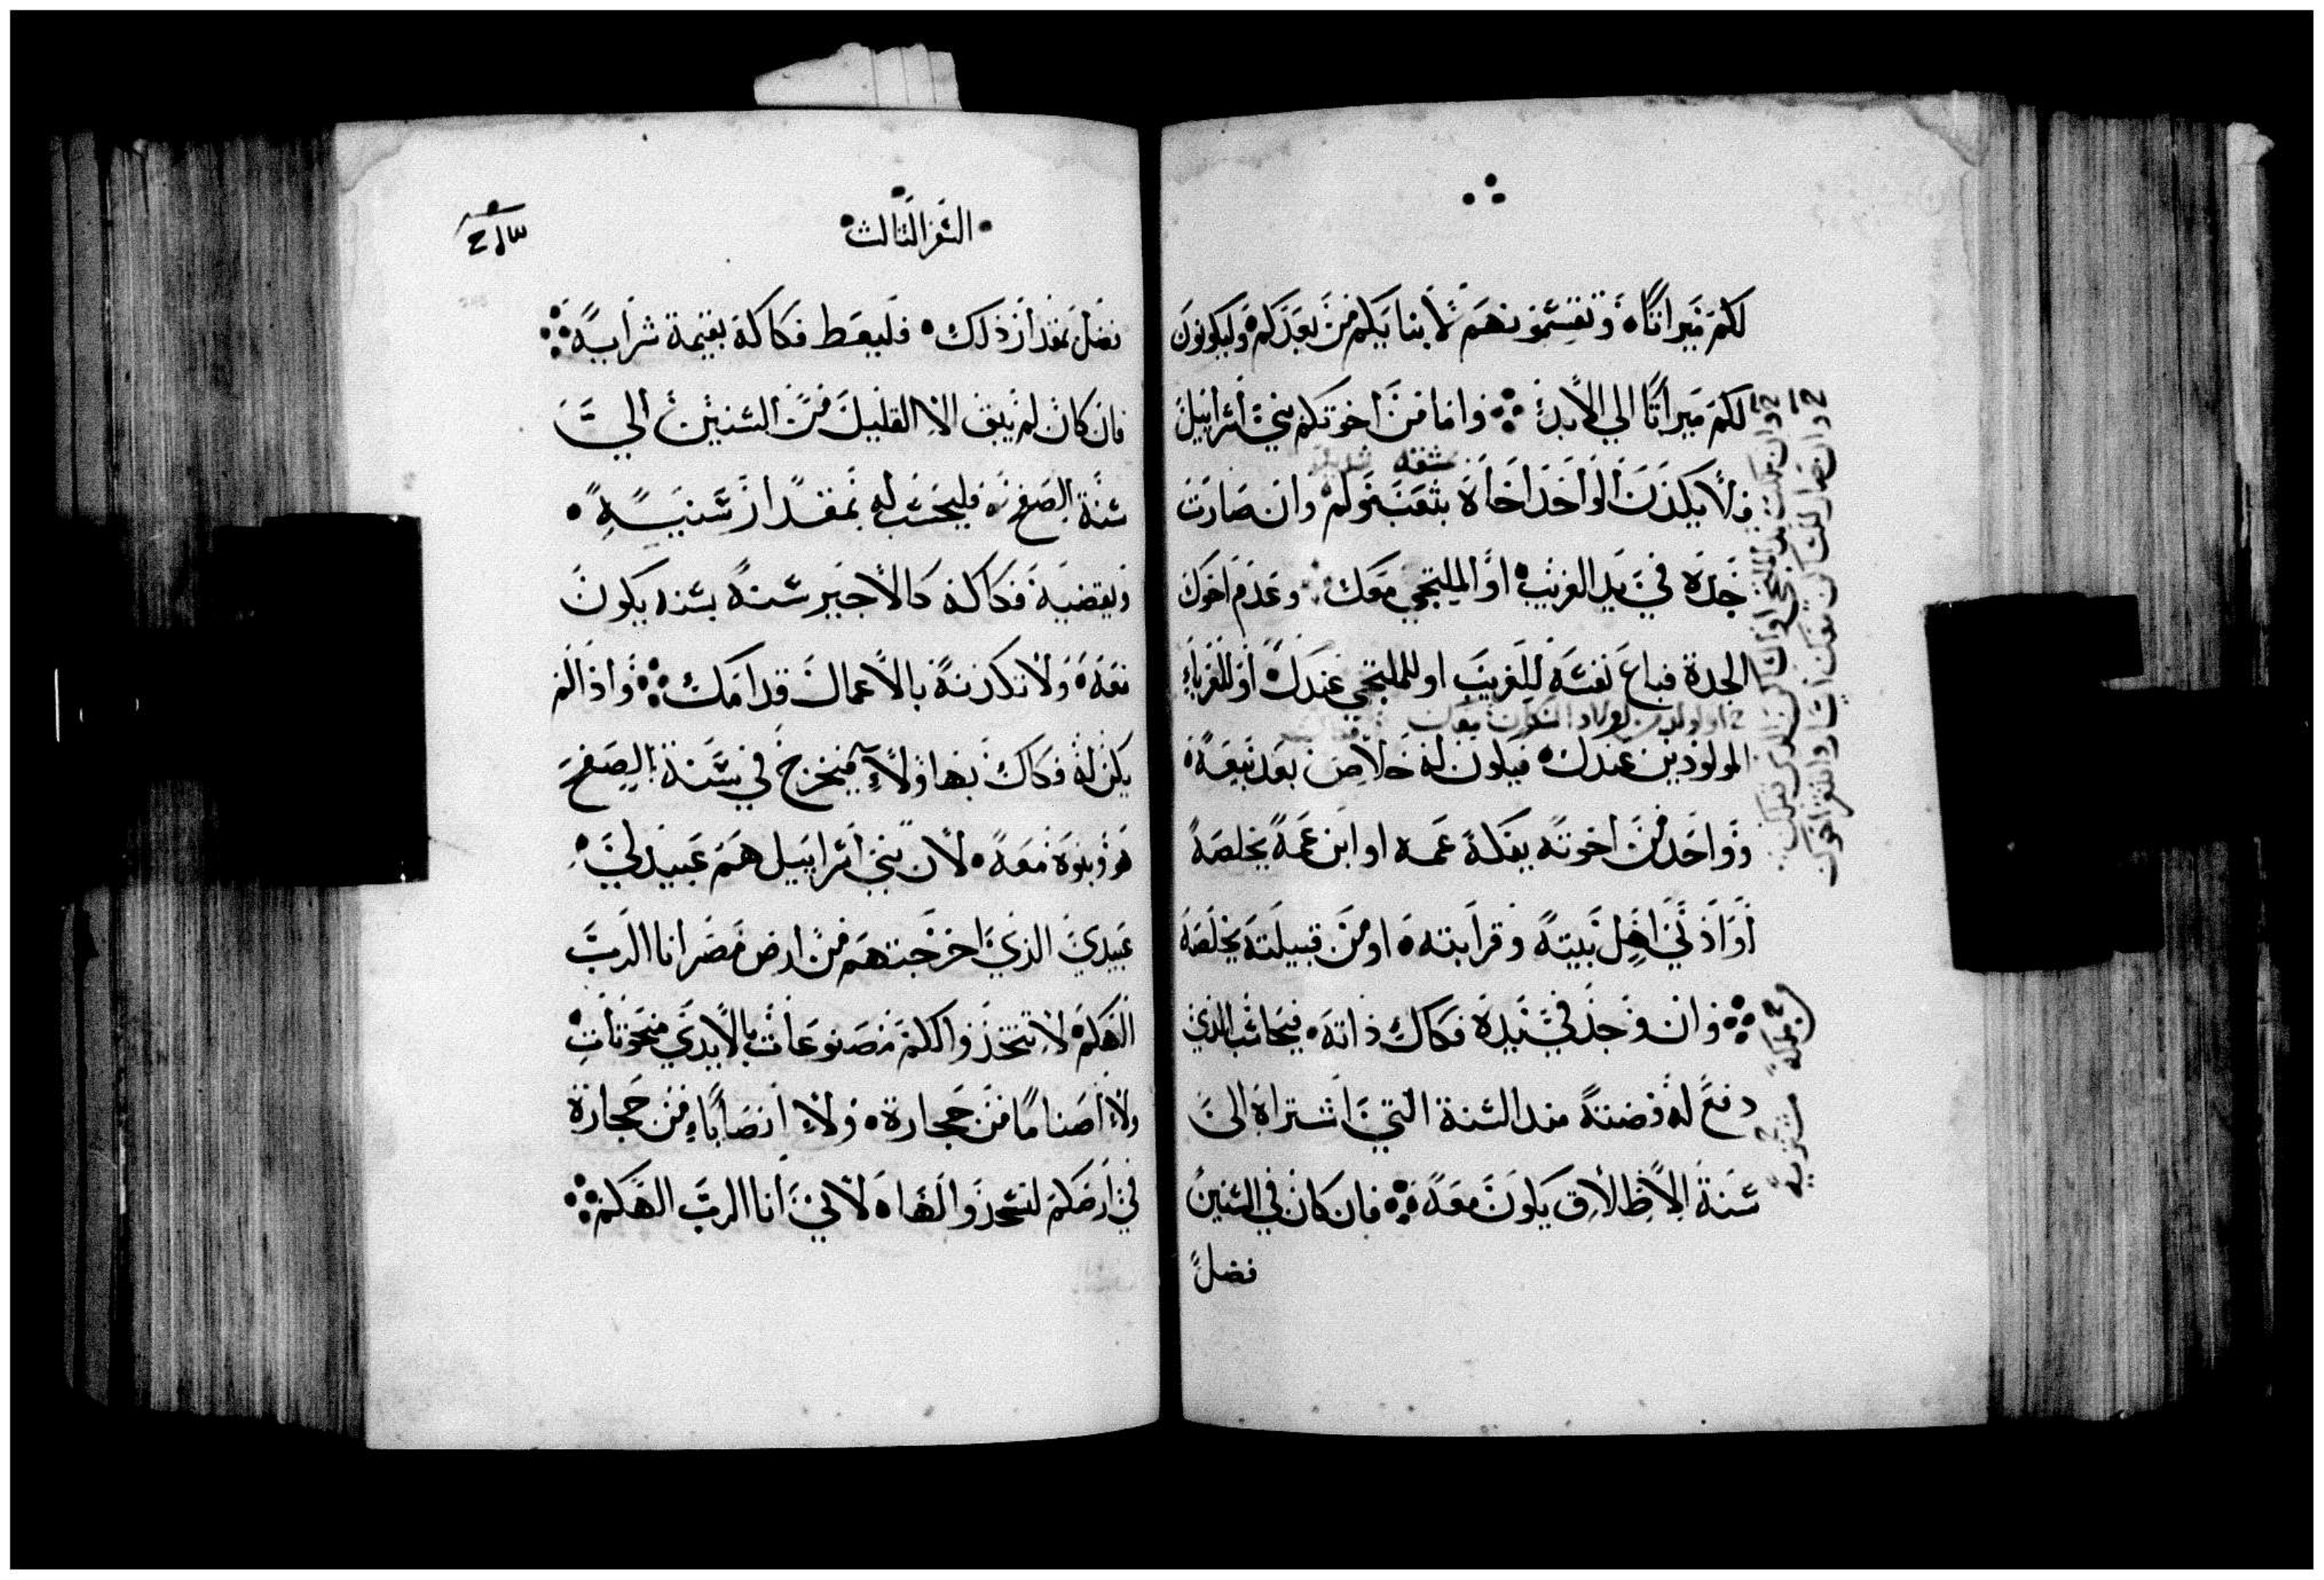 لكم ميراثا وتقسموهم لابنايكم من بعدكم وليكونون
لكم ميراثا الي الابد واما من اخوتكم بني اسراييل
فلا يكدن الواحد اخاه بتعب ولم وان صارت
جدة في يد الغريب او الملتجي معك وعدم اخوك
الجدة فباع نفسه للغريب او للملتجي عندك او للغرباء
المولودين عندك فيكون له خلاص بعد بيعه
وواحد من اخوته يفكه عمه او ابن عمه يخلصه
او اذني اهل بيته وقرابته او من قبيلته يخلصه
وان وجد في يده فكاك ذاته فيحاسب الذي
دفع له فضته منذ السنة التي اشتراه الى
سنة الاطلاق يكون معه فان كان في السنين
فضل
السفر الثالث
فضل بمقدار ذلك فليعط فكاكه بقيمة شرايه
فان كان لم يبق الا القليل من السنين الي
سنة الصفح فليحسب له بمقدار سنيه
ويقضيه فكاكه كالاجير سنة بسنه يكون
معه ولا تكدنه بالاعمال قدامك واذا لم
يكن له فكاك بهاولاء فيخرج في سنة الصفح
هو وبنوه معه لان بني اسراييل هم عبيد لي
عبيدي الذي اخرجتهم من ارض مصر انا الرب
الهكم لا تتخذوا لكم مصنوعات بالايدي منحوتات
ولا اصناما من حجارة ولا انصابا من حجارة
في ارضكم لتسجدوا لها لاني انا الرب الهكم